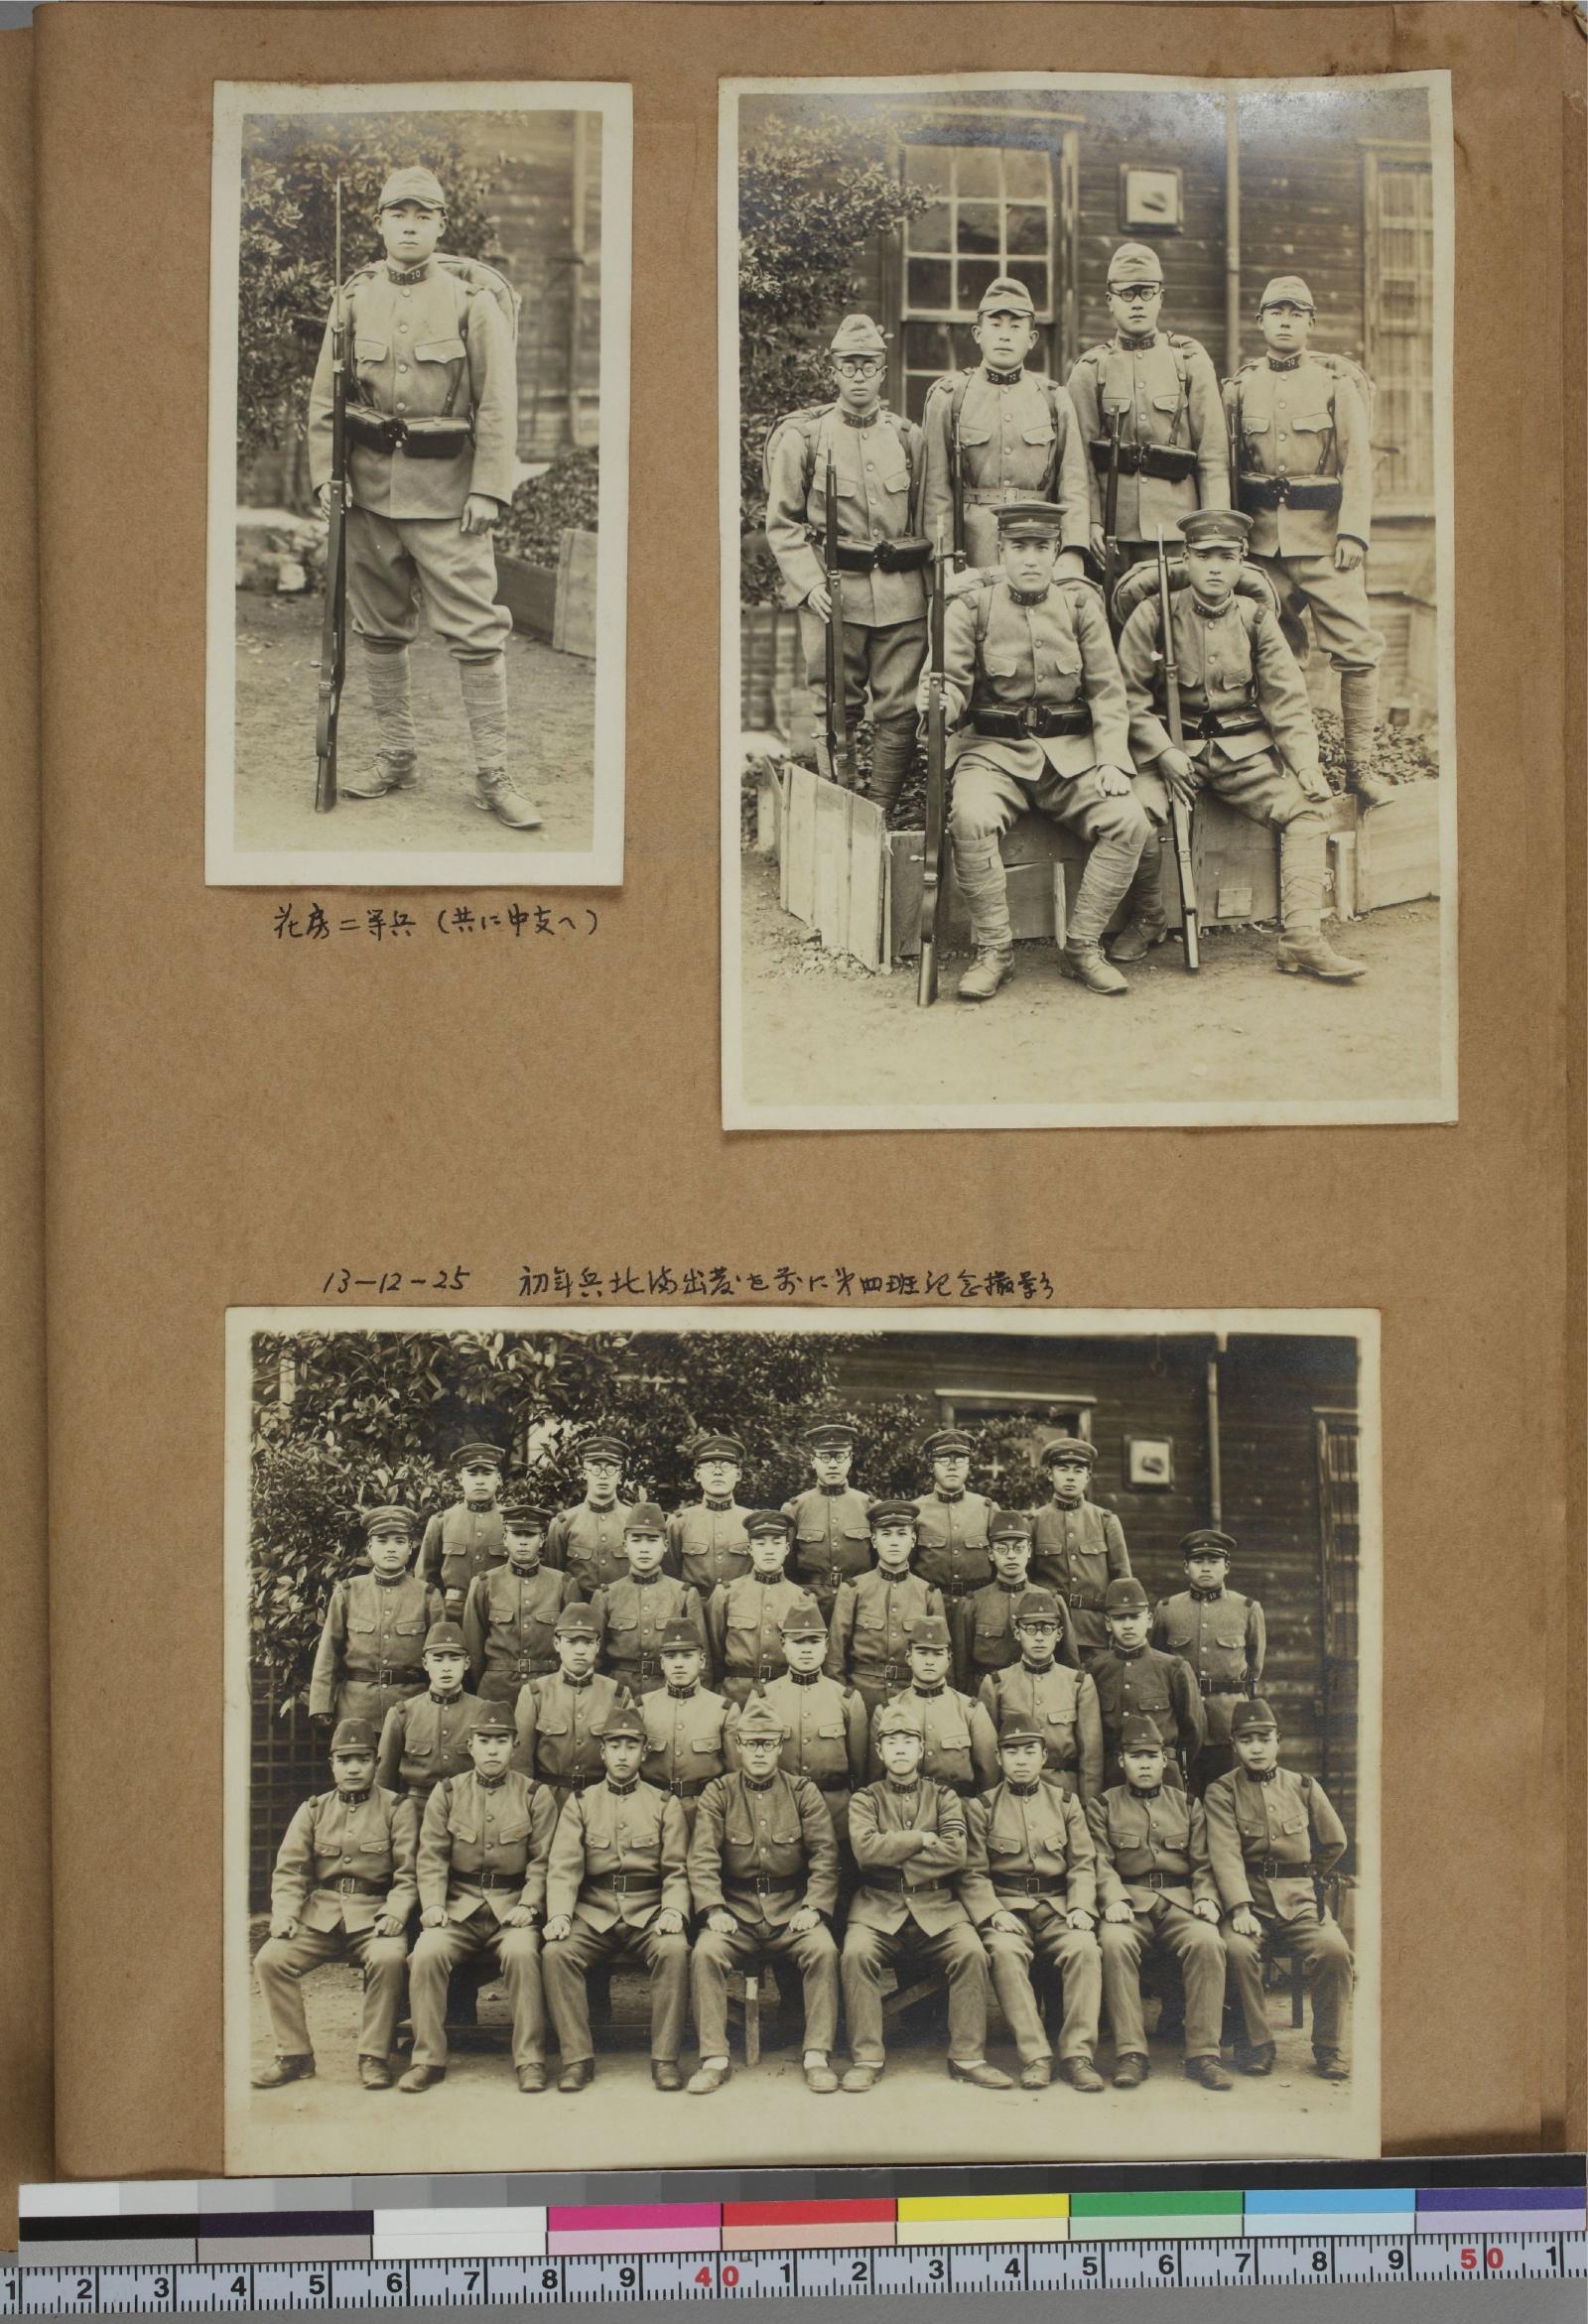 花房二等兵(共に中支へ)
13-12-25 初年兵北満出発を前に第四班記念撮影
1 2 3 4 5 6 7 8 9 40 1 2 3 4 5 6 7 8 9 50 1